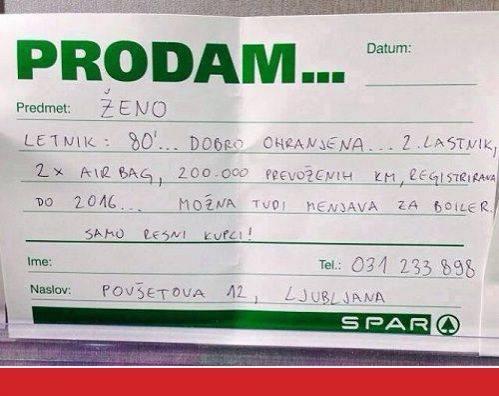 PRODAM...
Datum:
Predmet: ŽENO
LETNIK: 80'... DOBRO OHRANJENA... 2. LASTNIK,
2x AIR BAG, 200.000 PREVOŽENIH KM, REGISTRIRANA
DO 2016... MOŽNA TUDI MENJAVA ZA BOILER.
SAMO RESNI KUPCI!
Ime:
Tel.: 031 233 898
Naslov: POVŠETOVA 12, LJUBLJANA
SPAR